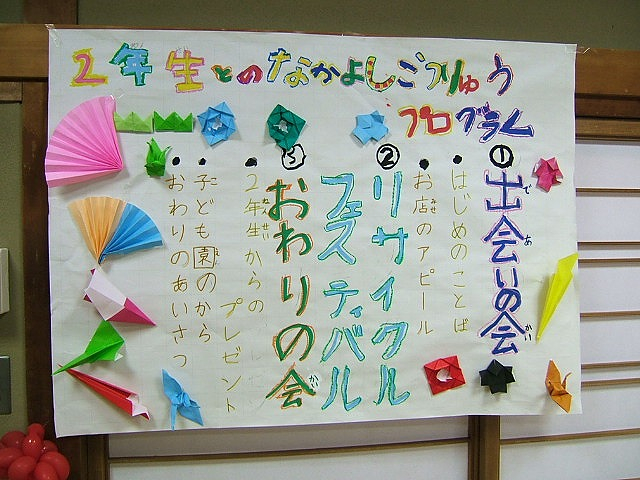 2年生とのなかよしこうりゅう
プログラム
①出会いの会
で あ かい
・はじめのことば
・お店のアピール
みせ
②リサイクル
フェスティバル
③おわりの会
かい
・2年生からの
ねんせい
プレゼント
・子ども園のから
こ えん
・おわりのあいさつ